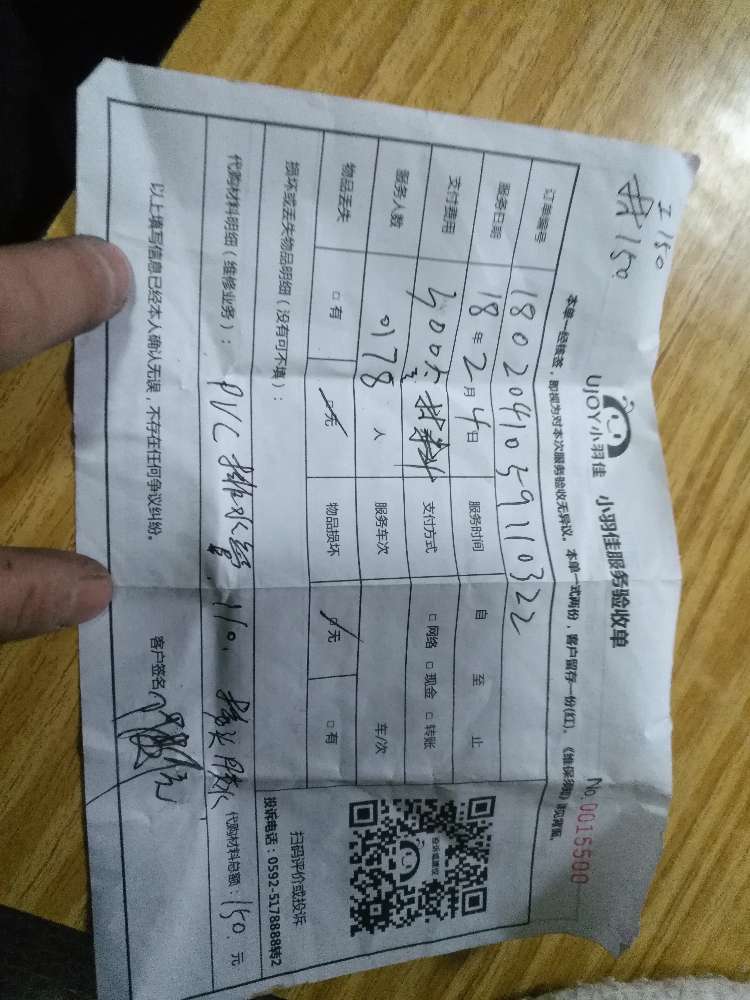 工150
材150
UJOY小羽佳 小羽佳服务验收单
No.0015500
本单一经核签，即视为对本次服务验收无异议。本单一式两份，客户留存一份(红)。《维保须知》详见背面。
订单编号 180204103591110322
服务日期 18年2月4日 服务时间 自 至 止
支付费用 300元 材料 支付方式 □网络 □现金 □转账
服务人数 0178 人 服务车次 车/次
物品丢失 □有 □无 物品损坏 □无 □有
损坏或丢失物品明细（没有可不填）：
代购材料明细（维修业务）： PVC排水管 110 接头 代购材料总额：150.元
扫码评价或投诉
投诉电话：0592-5178888转2
以上填写信息已经本人确认无误，不存在任何争议纠纷。 客户签名